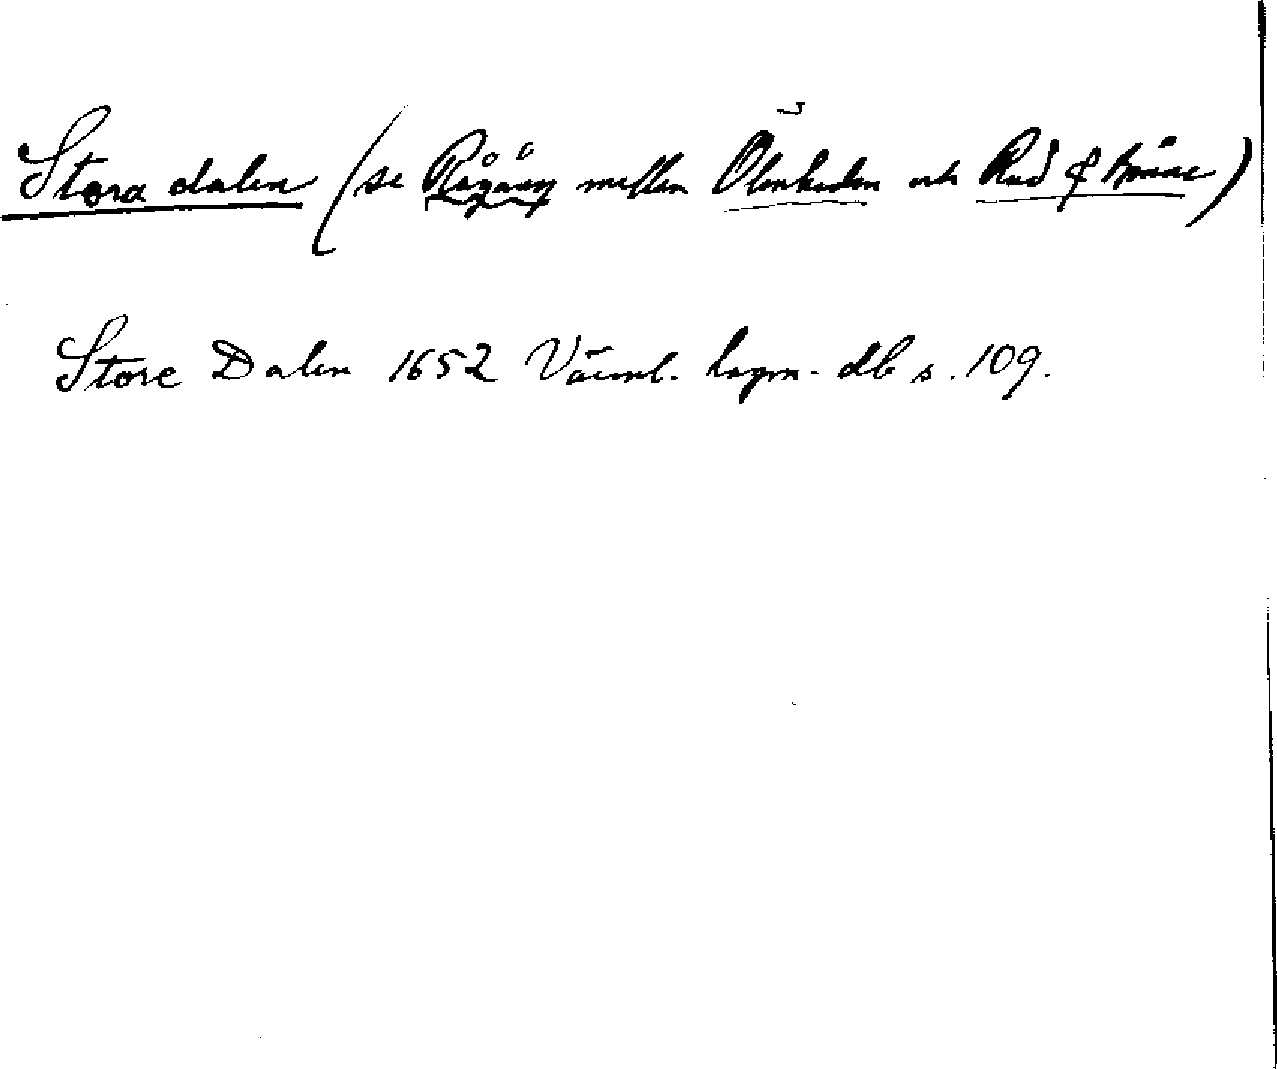 Stora dalen (se Rågång mellan och Rud &
Store Dalen 1652 Värml. lagm. db s. 109.